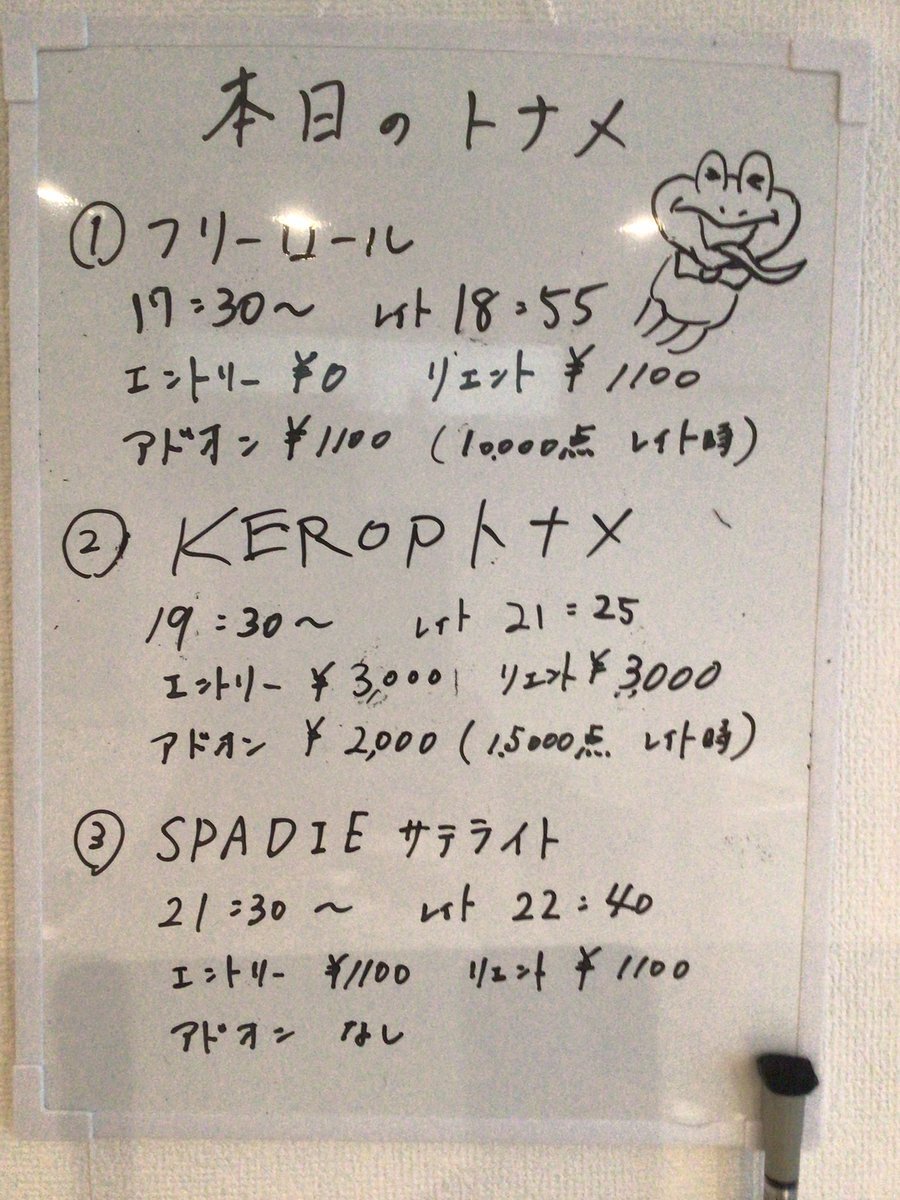 本日のトナメ
① フリーロール
17:30〜 レイト 18:55
エントリー ¥0 リエント ¥1100
アドオン ¥1100 (10,000点 レイト時)
② KEROPトナメ
19:30〜 レイト 21:25
エントリー ¥3,000 リエント ¥3,000
アドオン ¥2,000 (15,000点 レイト時)
③ SPADIE サテライト
21:30〜 レイト 22:40
エントリー ¥1100 リエント ¥1100
アドオン なし